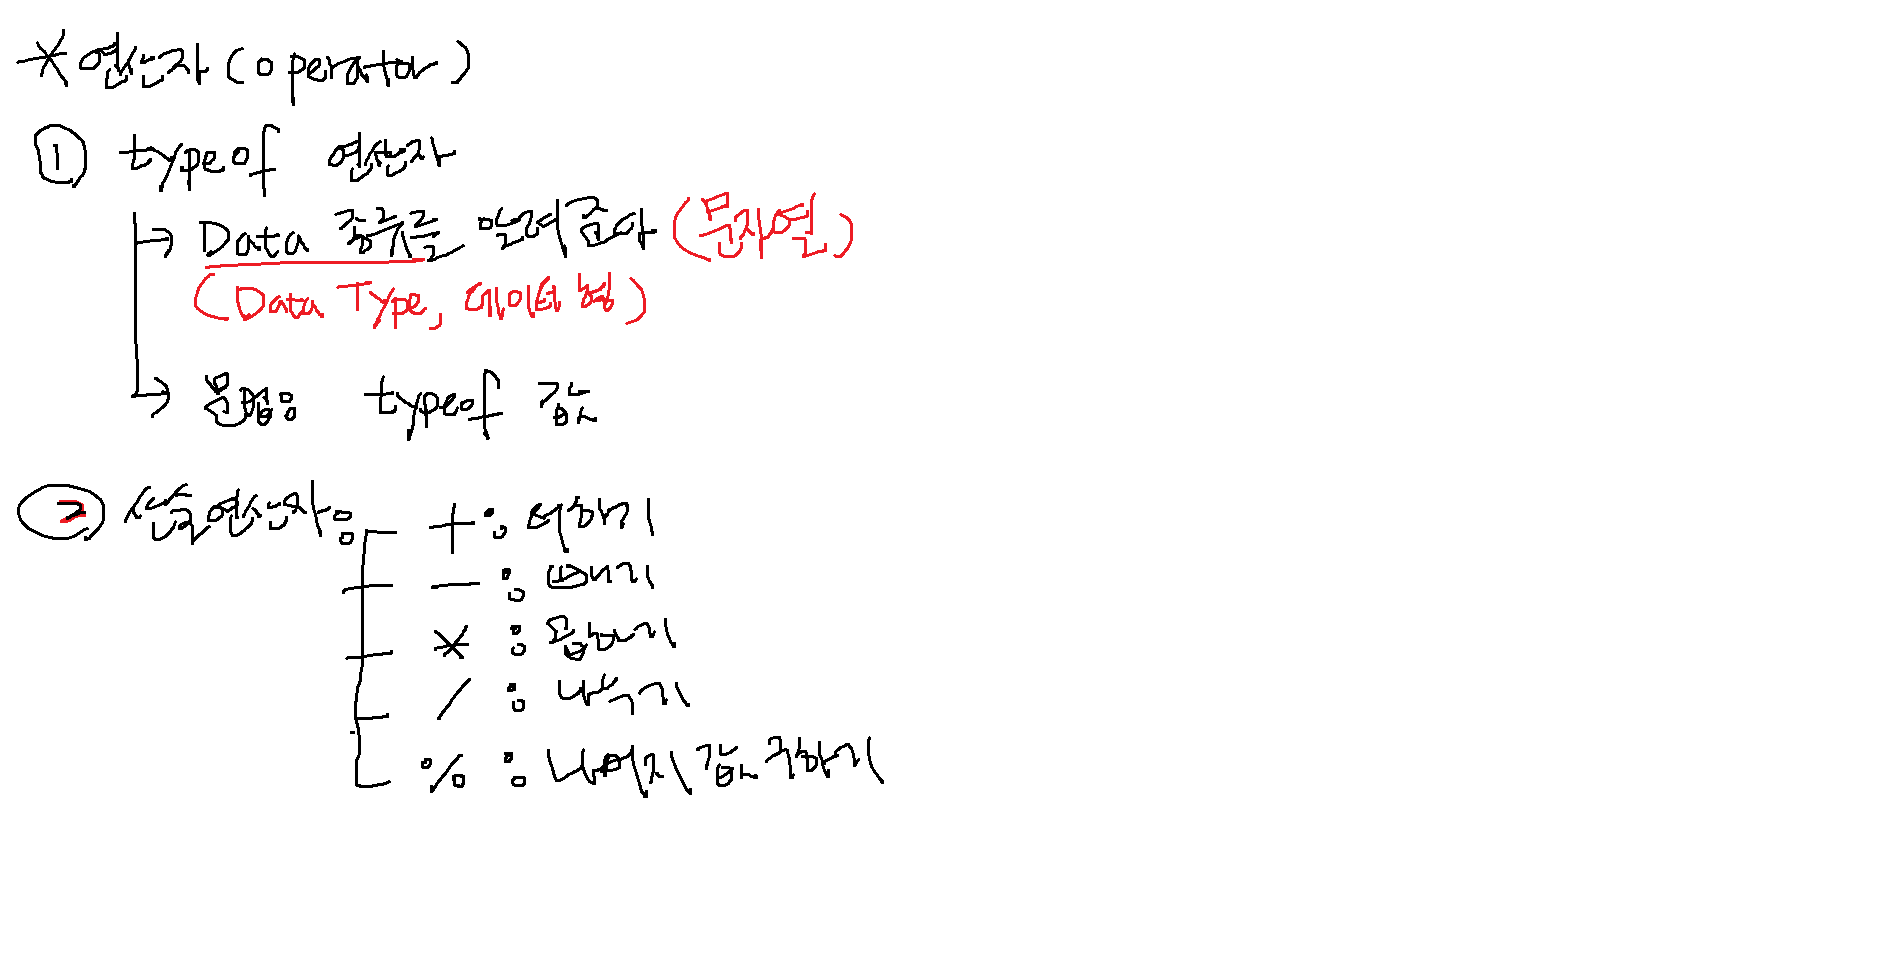 * 연산자 (operator)
① typeof 연산자
→ Data 종류를 알려준다 (문자열)
(Data Type, 데이터 형)
→ 문법: typeof 값
② 산술연산자:
+ : 더하기
- : 빼기
* : 곱하기
/ : 나누기
% : 나머지 값 구하기